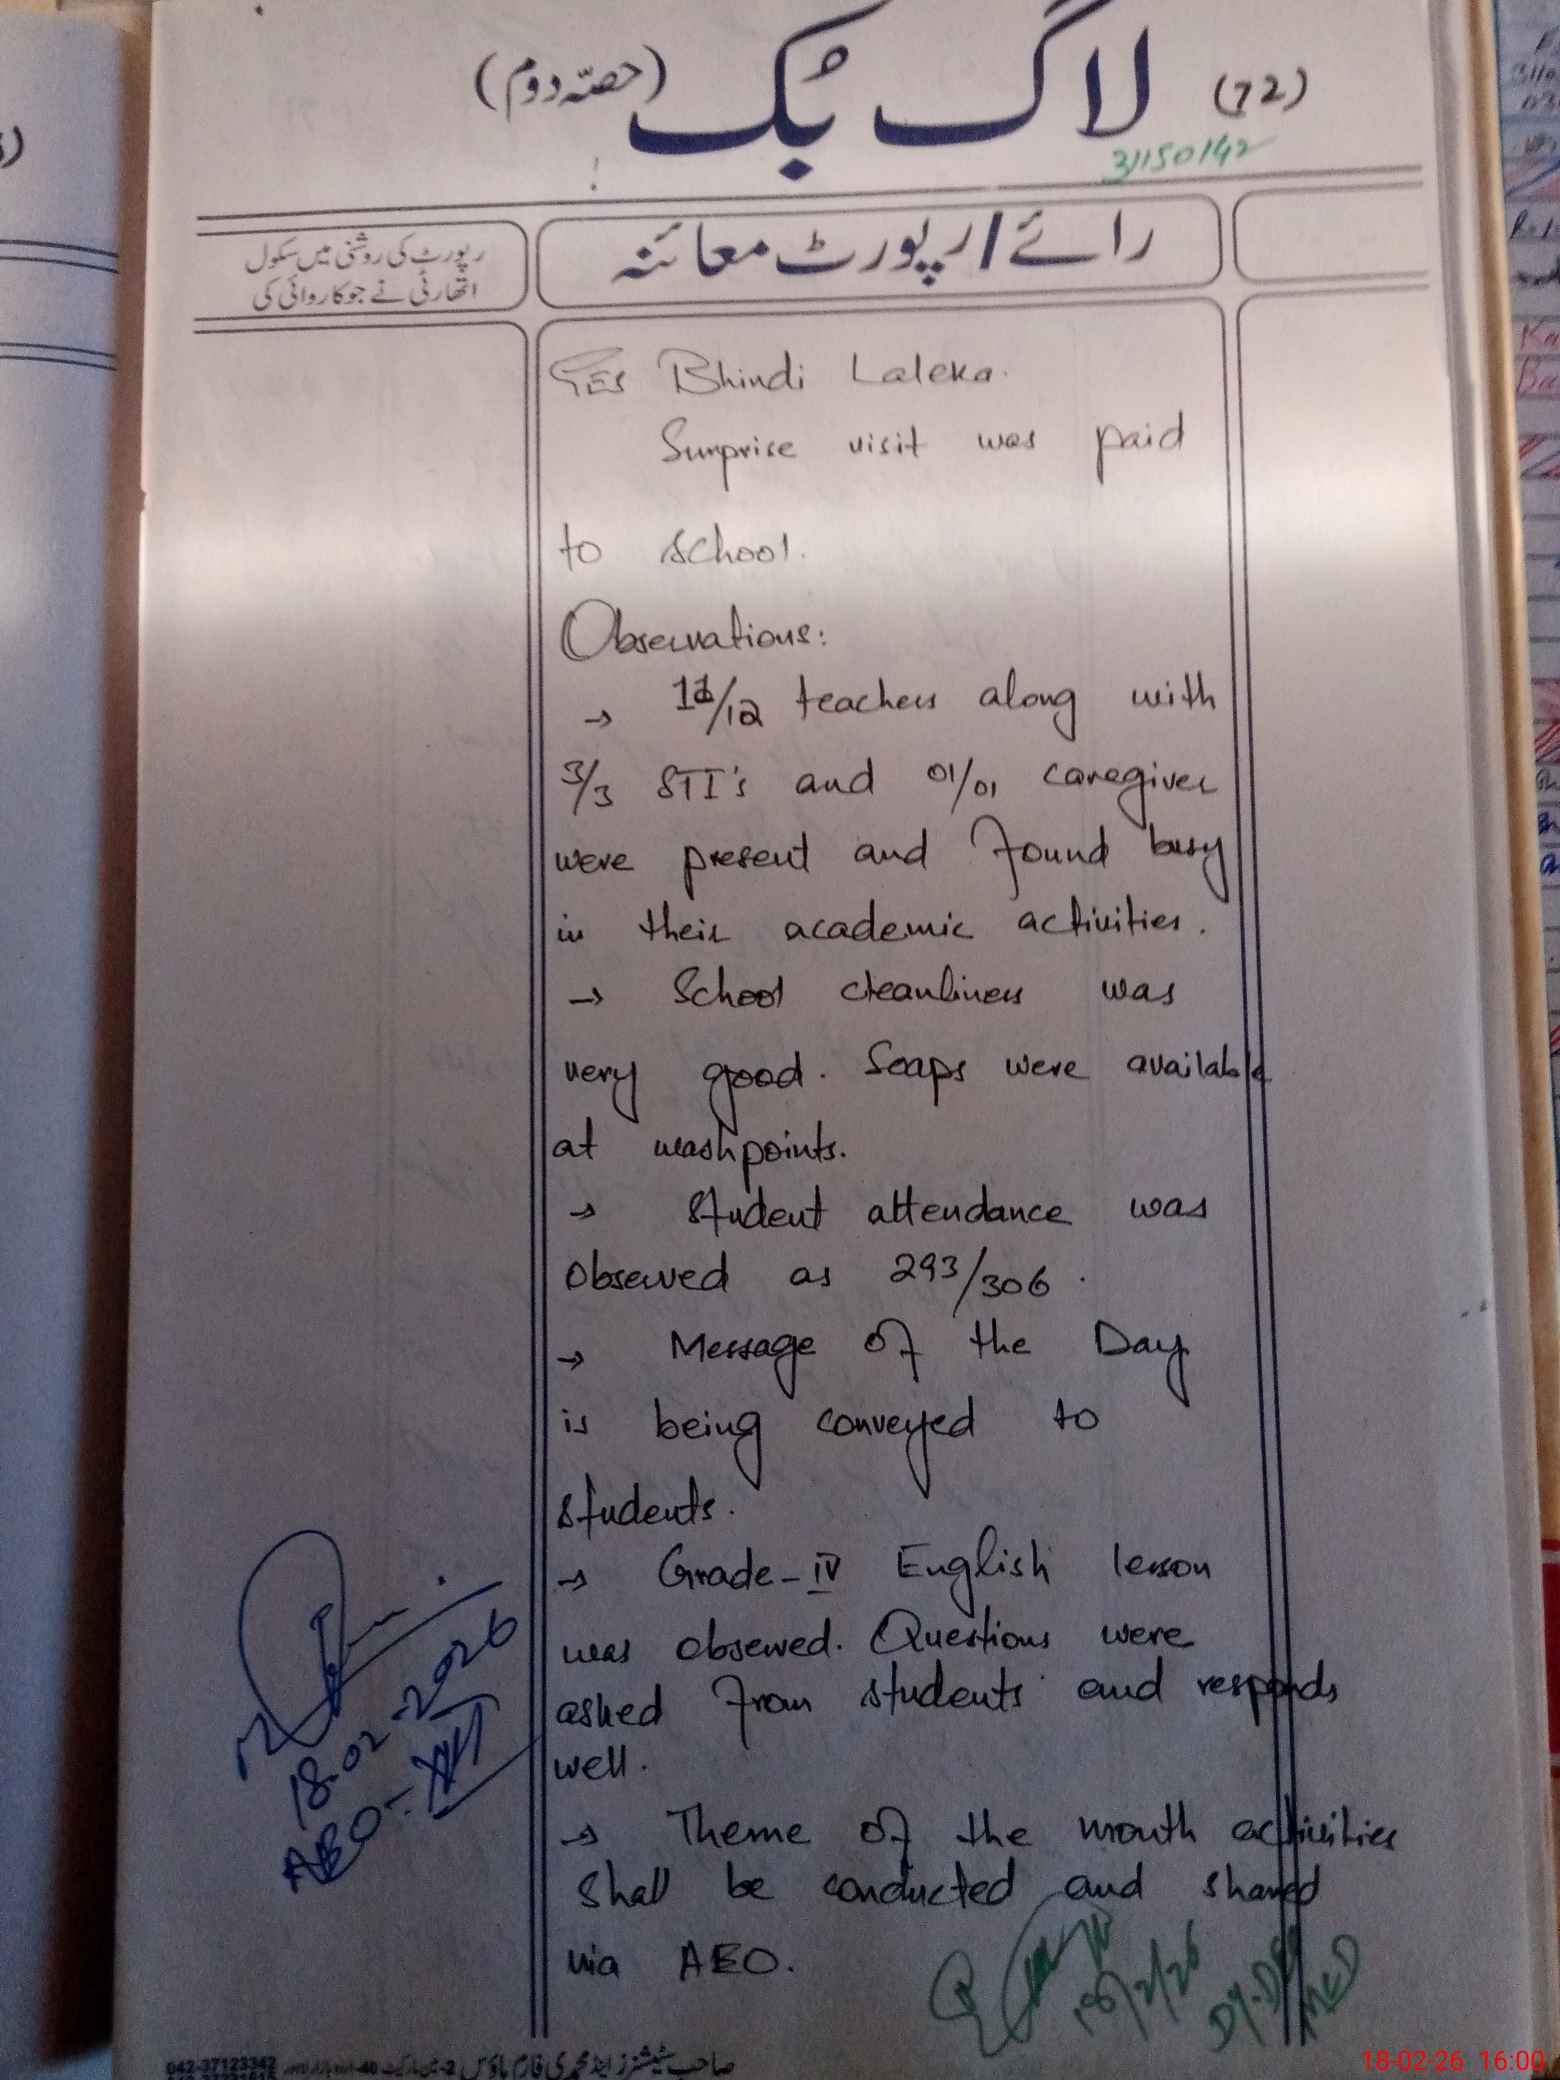 (72) لاگ بُک (حصّہ دوم)
31150142
رائے / رپورٹ معائنہ
رپورٹ کی روشنی میں سکول
اتھارٹی نے جو کاروائی کی
GES Bhindi Laleka.
Surprise visit was paid
to school.
Observations:
→ 11/12 teachers along with
3/3 STI's and 01/01 caregiver
were present and found busy
in their academic activities.
→ School cleanliness was
very good. Soaps were available
at washpoints.
→ Student attendance was
observed as 293/306.
→ Message of the Day
is being conveyed to
students.
→ Grade-IV English lesson
was observed. Questions were
asked from students and responds
well.
→ Theme of the month activities
shall be conducted and shared
via AEO.
18-02-2026
AEO-
18/2/26
Dy. DEO
042-37123342
18-02-26 16:00